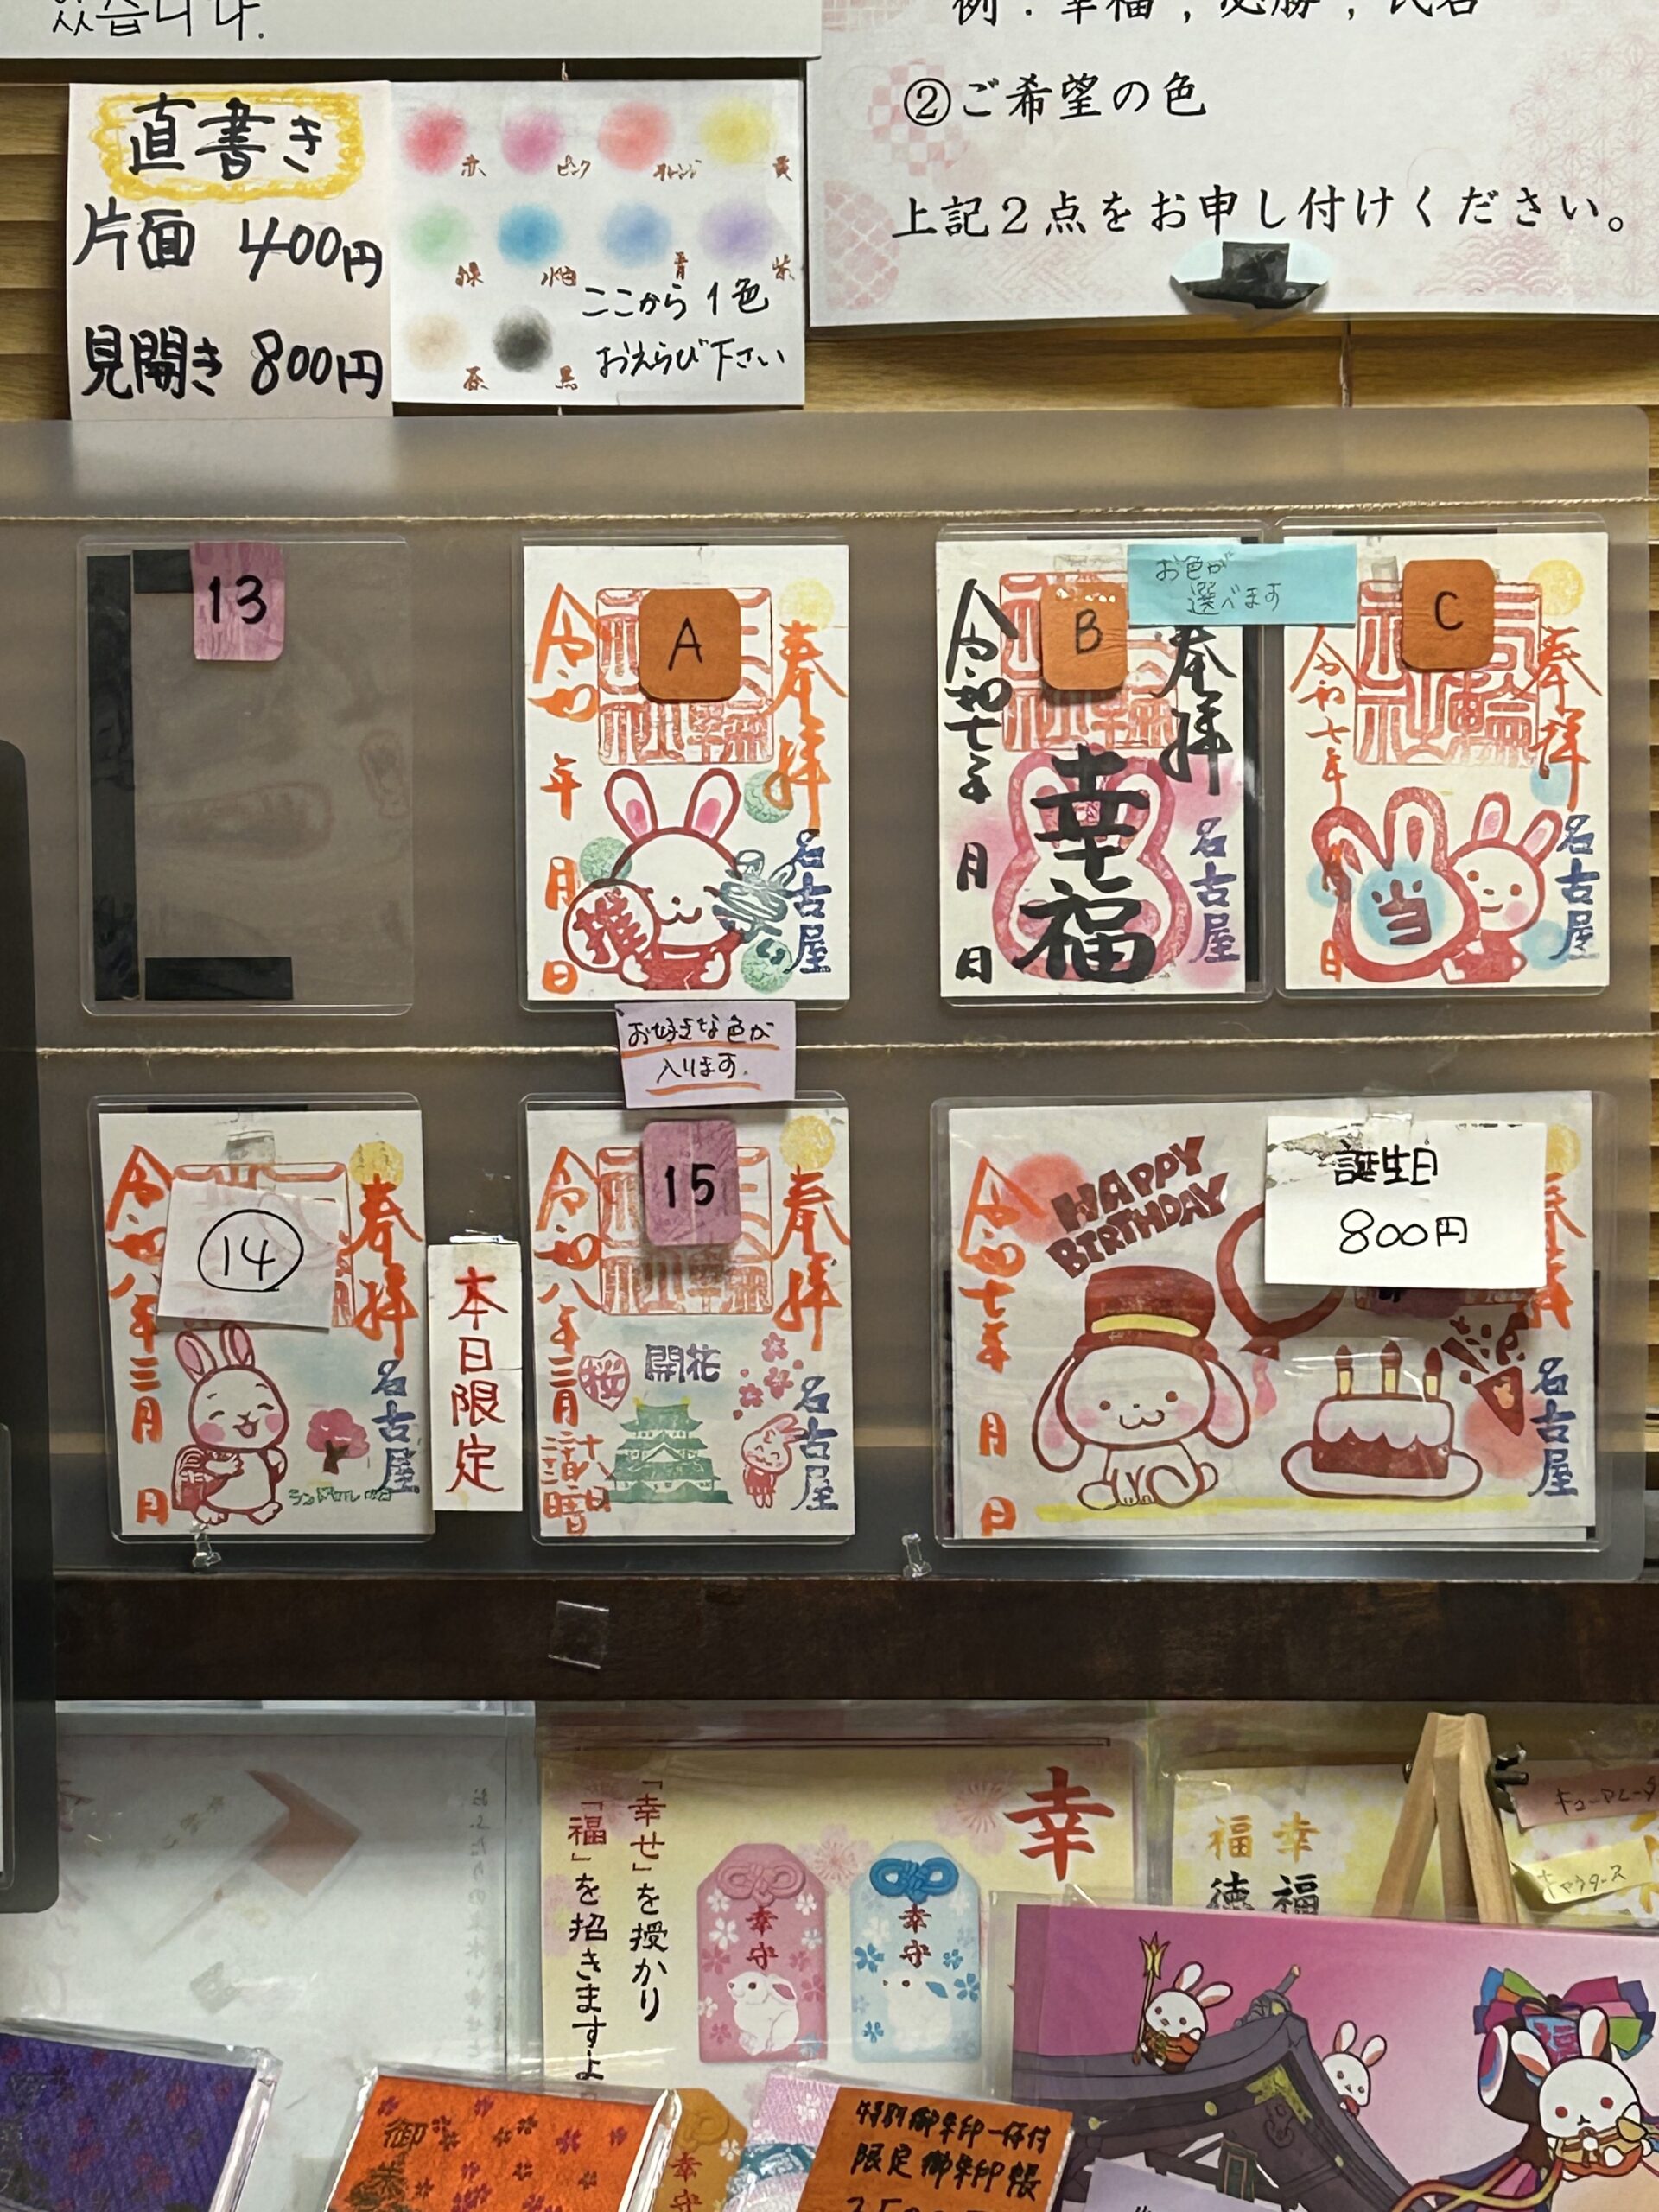 있습니다.
例：幸福，必勝，氏名
②ご希望の色
上記２点をお申し付けください。
直書き
片面 400円
見開き 800円
赤 ピンク オレンジ 黄
緑 水色 青 紫
茶 黒
ここから1色
おえらび下さい
13
A
奉拝
名古屋
推
令和 年 月 日
お好きな色が
入ります。
B
お色が
選べます
奉拝
名古屋
幸福
令和七年 月 日
C
奉拝
名古屋
当
令和七年 月 日
14
奉拝
名古屋
令和八年三月 日
本日限定
15
奉拝
名古屋
桜
開花
令和八年三月十八日
晴
誕生日
800円
HAPPY
BIRTHDAY
名古屋
令和七年 月 日
幸
「幸せ」を授かり
「福」を招きますよ
幸守
幸守
幸福
福徳
キャラクターズ
御
幸守
特別御朱印一体付
限定御朱印帳